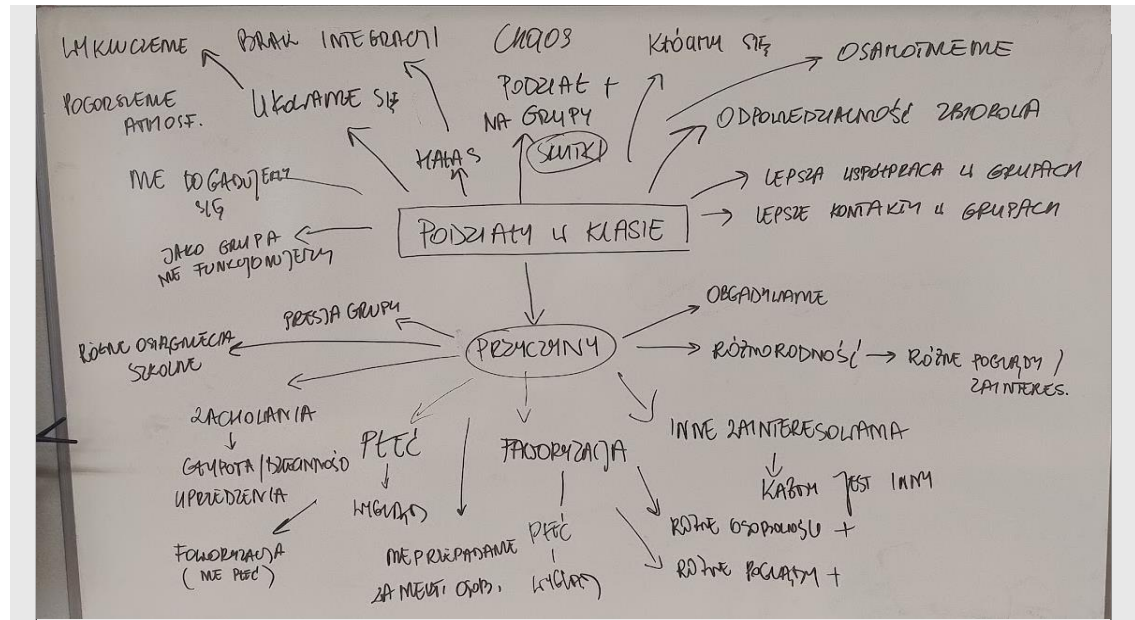 WYKLUCZENIE
BRAK INTEGRACJI
CHAOS
KŁÓCIMY SIĘ
OSAMOTNIENIE
POGORSZENIE
ATMOSF.
UKOLANIE SIĘ
PODZIAŁ +
NA GRUPY
ODPOWIEDZIALNOŚĆ ZBIOROWA
HAŁAS
SKUTKI
NIE DOGADUJEMY
SIĘ
LEPSZA WSPÓŁPRACA W GRUPACH
LEPSZE KONTAKTY W GRUPACH
JAKO GRUPA
NIE FUNKCJONUJEMY
PODZIAŁY W KLASIE
PRESJA GRUPY
OBGADYWANIE
RÓŻNE OSIĄGNIĘCIA
SZKOLNE
PRZYCZYNY
RÓŻNORODNOŚĆ → RÓŻNE POGLĄDY /
ZAINTERES.
ZACHOWANIA
GŁUPOTA/DZIECINNOŚĆ
UPRZEDZENIA
PŁEĆ
WYGLĄD
FAWORYZACJA
INNE ZAINTERESOWANIA
KAŻDY JEST INNY
FAWORYZACJA
(NIE PŁEĆ)
NIEPRZEPADANIE
ZA NIEKT. OSOB.
PŁEĆ
WYGLĄD
RÓŻNE OSOBOWOŚCI +
RÓŻNE POGLĄDY +